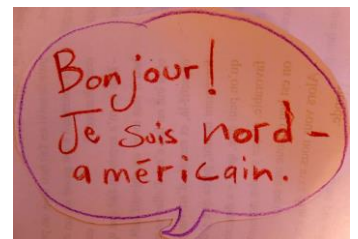 Bonjour!
Je suis nord-
américain.